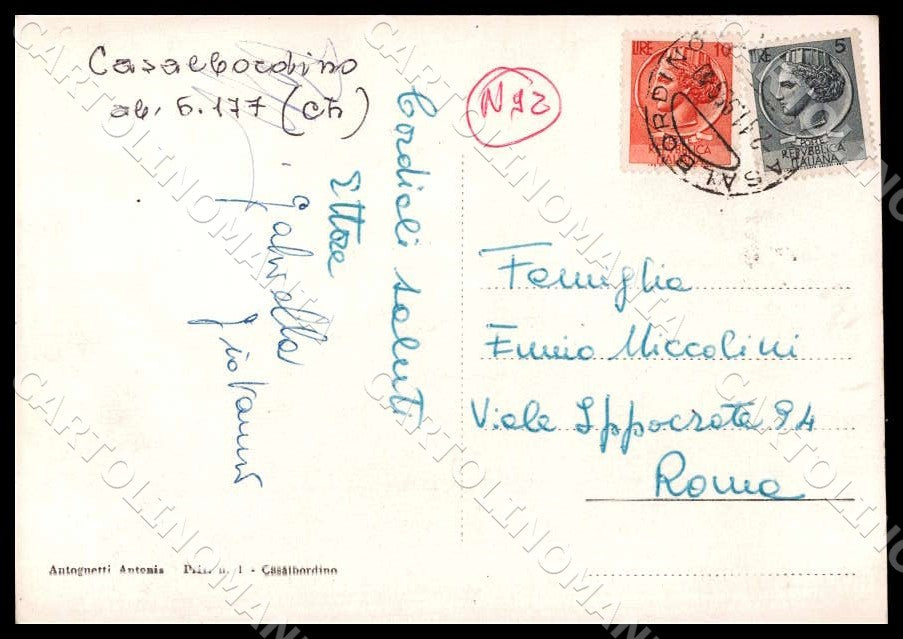 Casalbordino
ab. 6.177 (Ch)
N 92
Cordiali saluti
Ettore
Gabriella
Giovanni
LIRE 10
LIRE 5
POSTE
REPVBBLICA
ITALIANA
CASALBORDINO
Famiglia
Ennio Miccolini
Viale Ippocrate 94
Roma
Antognetti Antonia Priv. n. 1 - Casalbordino
CARTOLINOMANIA